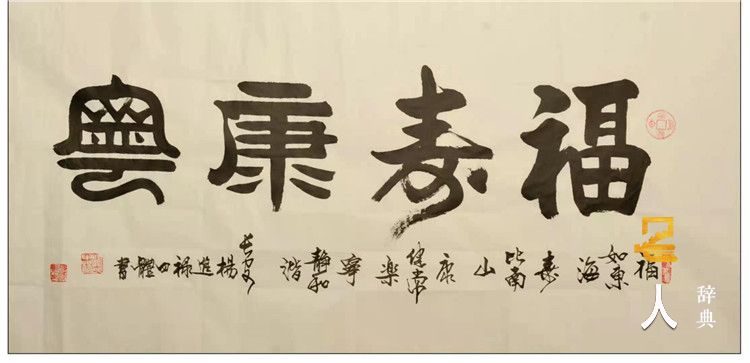 福寿康寧
福如東海寿比南山康健常樂寧靜和諧楊進禄四體書
人
辞典